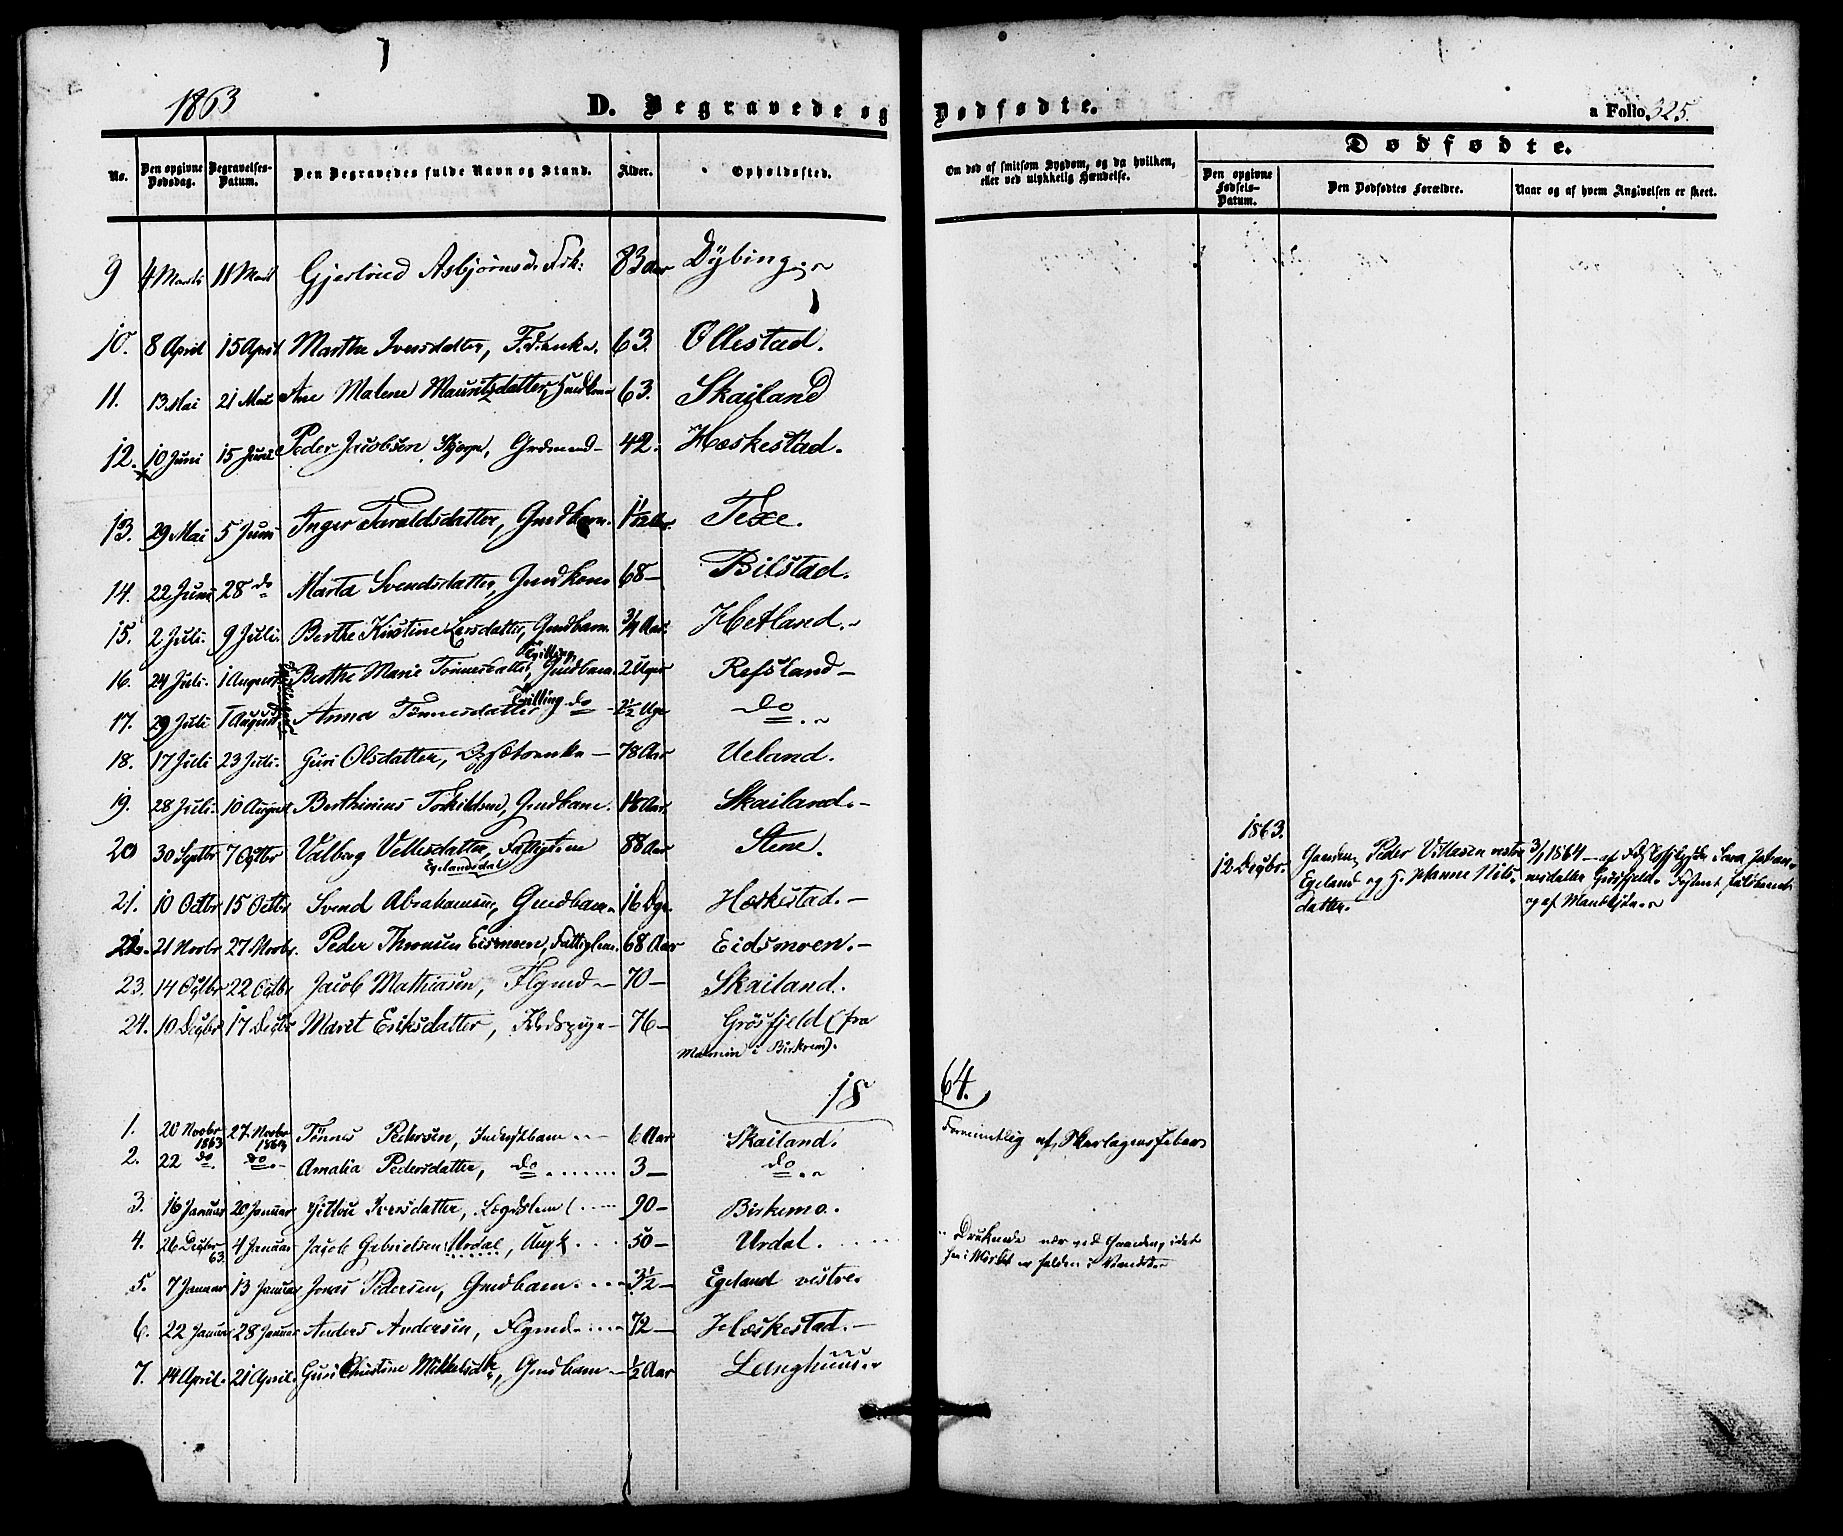 1863 D. Begravede og Dødfødte. a Folio 325.
No. Den opgivne Dødsdag. Begravelses-Datum. Den Begravedes fulde Navn og Stand. Alder. Opholdssted.
Om død af smitsom Sygdom, og da hvilken, eller ved ulykkelig Hændelse.
Dødfødte.
Den opgivne Fødsels-Datum. Den Dødfødtes Forældre. Naar og af hvem Angivelsen er skeet.
9 4 Marts 11 Mart Gjertrud Asbjørnsd. 83 Aar Dybing.
10. 8 April 15 April Marthe Iversdatter, 63. Ollestad.
11. 13 Mai 21 Mai Ane Malene Mauritzdatter, 63. Skailand
12. 10 Juni 15 Juni Peder Jacobsen Grdmand 42. Hæskestad.
13. 29 Mai 5 Juni Inger Taraldsdatter, Grdbarn. Texe.
14. 22 Juni 28 do Marta Svendsdatter, Grdkone 68 – Bilstad.
15. 2 Juli. 9 Juli. Berthe Kirstine Larsdatter, Grdbarn. 3/4 Aar. Hetland.
Tvilling,
16. 24 Juli. 1 August Berthe Marie Tønnesdatter, Grdbarn 2 Uger Refsland –
Tvilling
17. 29 Juli 1 August Anna Tønnesdatter do 2 1/2 Uge do
18. 17 Juli 23 Juli. Guri Olsdatter, 78 Aar Ueland.
19. 28 Juli. 10 August Berthinius Torkildsen, Grdbarn. Skailand. –
20 30 Septbr 7 Octbr Valborg Vellesdatter, Fattiglem 88 Aar Stene.
Egelandsdal
21. 10 Octbr 15 Octbr Svend Abrahamsen, Grdbarn. 16 Dge. Hæskestad. –
22. 21 Novbr 27 Novbr. Peder Thomsen Eismoen, Fattiglem. 68 Aar Eidsmoen. –
23. 14 Octbr 22 Octbr Jacob Mathiasen, Flgmd – 70 – Skailand.
24. 10 Decbr 17 Decbr Maret Eriksdatter, 76 – Grøsfjeld (fra
Malmin i Birkrem).
1863.
12 Decbr. Gmden Peder Villasen vestre 3/1 1864 – af
Egeland og H. Johanne Nils-
datter.
og af Manden.
1864.
1. 20 Novbr 1863 27 Novbr Tønnes Pedersen, 6 Aar Skailand. Formentlig af Skarlagensfeber
2. 22 do do. Amalia Pedersdatter, do 3 – do.
3. 16 Januar 20 Januar Iversdatter, Lægdslem 90 – Birkemo.
4. 26 Decbr 63. 4 Januar Jacob Gabrielsen Urdal, 50 – Urdal. Druknede nær ved Gaarden, idet
han i Mørket er falden i Vandet.
5. 7 Januar 13 Januar Jonas Pedersen, Grdbarn. 3 1/2 – Egeland vestre.
6. 22 Januar 28 Januar Anders Andersen, Flgmd. 72 – Hæskestad. –
7. 14 April. 21 April. Guri Christine Mikkelsdtr, Grdbarn – 1/2 Aar Langhuus.